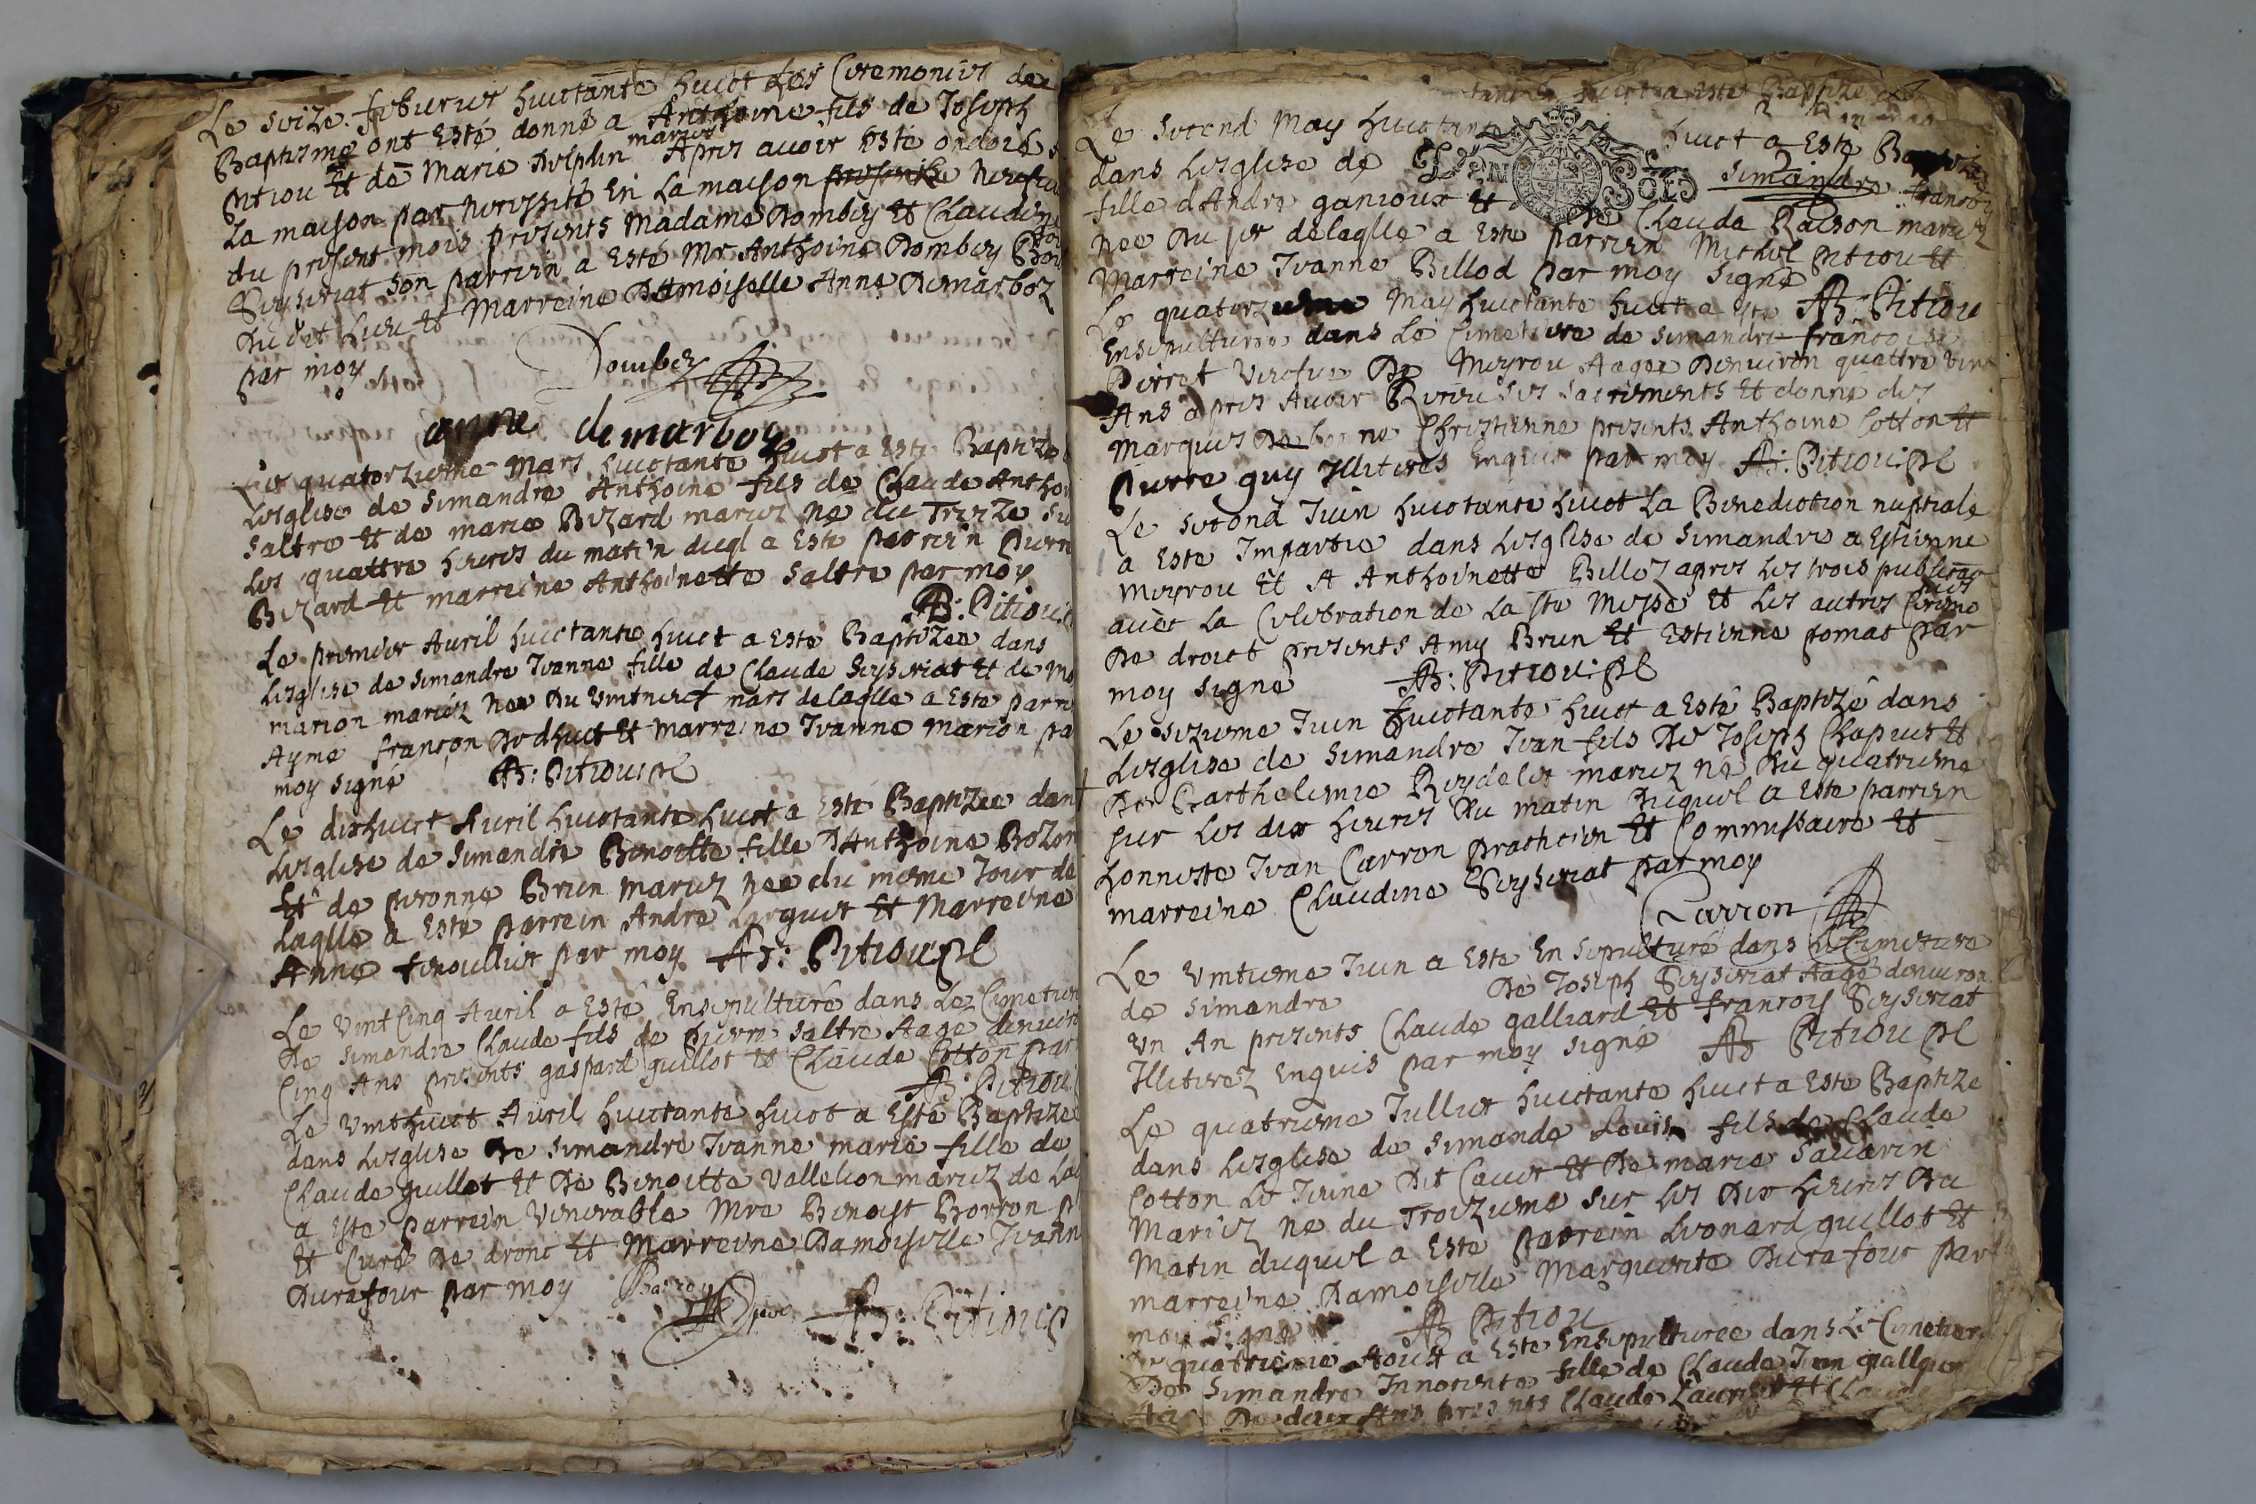 Le seize feburier huictante huict les Ceremonies de
Baptisme ont Esté donné a Anthoine fils de Joseph
Pitiou Et de Marie Dolphin mariez Apres auoir Esté ondoié
La maison par necessité En La maison
du present mois presents Madame Dombey Et Claudine
Seyseriat son parrein a Esté Mr Anthoine Dombey
Dudit Lieu Et Marreine Damoiselle Anne Demarboz
par moy
Dombey
anne demarboz
Le quatorzieme Mars huictante huict a Esté Baptize
Lesglise de Simandre Anthoine fils de Claude Antho
Saltre Et de marie Bizard mariez né du Treize su
Les quattre heures du matin duql a Esté parrein Pierr
Bizard Et marreine Anthoinette Saltre par moy
AB: Pitiou
Le premier Auril huictante huict a Esté Baptizée dans
Lesglise de Simandre Jeanne fille de Claude Seyseriat Et de
marion mariez Née Du vintneuf mars delaqlle a Esté parre
Ayme françon Et Marreine Jeanne marion pa
moy signé AB: Pitiou
Le dixhuict Auril huictante huict a Esté Baptizée dan
Lesglise de Simandre Benoitte fille D'Anthoine Bozon
Et de peronne Brun mariez Née du mesme Jour de
Laqlle a Esté parrein André Et Marreine
Anne par moy AB: Pitiou
Le vint Cinq Auril a Esté Ensepulturé dans Le Cimetier
De Simandre Claude fils de Pierre Saltre Aagé denuiro
Cinq Ans presents gaspard guillot Et Claude Cotton par
AB: Pitiou
Le vinthuict Auril huictante huict a Esté Baptizée
dans Lesglise De Simandre Jeanne marie fille de
Claude guillot Et De Benoitte Vallelion mariez de La
a Esté parrein Venerable Mre Benoist Borron
Et Curé De drone Et Marreine Damoiselle Jeann
Durafour par moy
AB: Pitiou
a Esté Baptizé
Le second May huictante huict a Esté Baptizée
dans Lesglise de Simandre françoy
DEN SOLS
fille d'André ganioux Et De Claude Raison mariez
Née Du jer delaqlle a Esté parrein Michel Pitiou Et
Marreine Jeanne Billod par moy signé
AB: Pitiou
Le quatorzieme May huictante huict a Esté
Ensepulturée dans Le Cimetiere de Simandre françoise
Perret Vefue De Meyrou Aagée Denuiron quattre vint
Ans apres Auoir Receu ses sacrements Et donné des
Marques De bonne Chrestienne presents Anthoine Cotton Et
Pierre guy Illiterés Enquis par moy AB: Pitiou
Le second Juin huictante huict La Benediction nuptiale
a Esté Impartie dans Lesglise de Simandre a Estienne
Meyrou Et A Anthoinette Billoz apres Les trois publications
auec La Celebration de La ste Messe Et Les autres Ceremo
De droict presents Amy Brun Et Estienne pomat par
moy signé AB: Pitiou
Le sezieme Juin huictante huict a Esté Baptizé dans
Lesglise de Simandre Jean fils De Joseph Chapuis Et
De Barthelemie Reydelet mariez né Du quatrieme
sur Les dix heures Du matin Duquel a Esté parrein
honneste Jean Carron prathicien Et Commissaire Et
marreine Claudine Seyseriat par moy
Carron
Le vintieme Juin a Esté Ensepulturé dans Le Cimetiere
de Simandre De Joseph Seyseriat Aagé denuiron
vn An presents Claude galliard Et françois Seyseriat
Illiterez Enquis par moy signé AB Pitiou
Le quatrieme Jullet huictante huict a Esté Baptizé
dans Lesglise de Simande Louis fils de Claude
Cotton Le Jeune Dit Et De marie Sauarin
Mariez né du Troizieme sur Les Dix heures Du
Matin duquel a Esté parrein Leonard guillot Et
marreine Damoiselle Marguerite Durafour par
moy signé AB Pitiou
Le quatrieme Aoust a Esté Ensepulturée dans Le Cimetiere
De Simandre Innocente fille de Claude Jean
De deux Ans presents Claude Et Claude